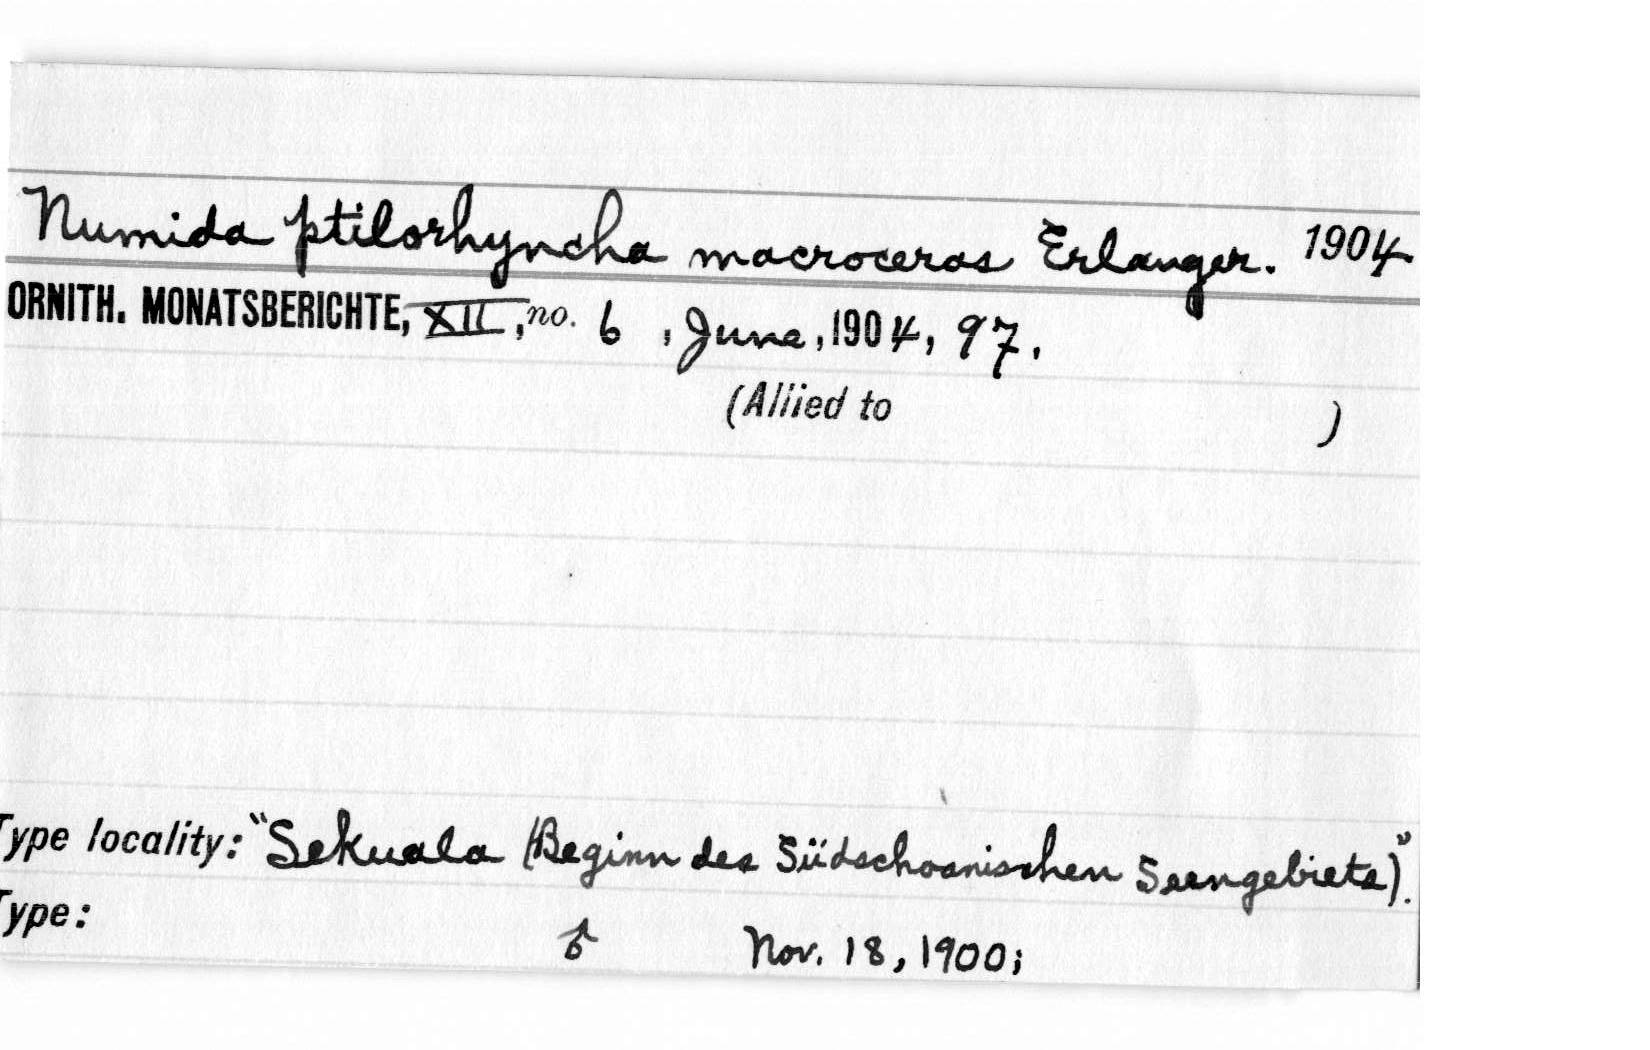 Numida ptilorhyncha macroceras Erlanger. 1904
ORNITH. MONATSBERICHTE, XII, no. 6, June, 1904, 97.
(Allied to )
Type locality: "Sekuala (Beginn des Südschoanischen Seengebiets)".
Type: ♂ Nov. 18, 1900;